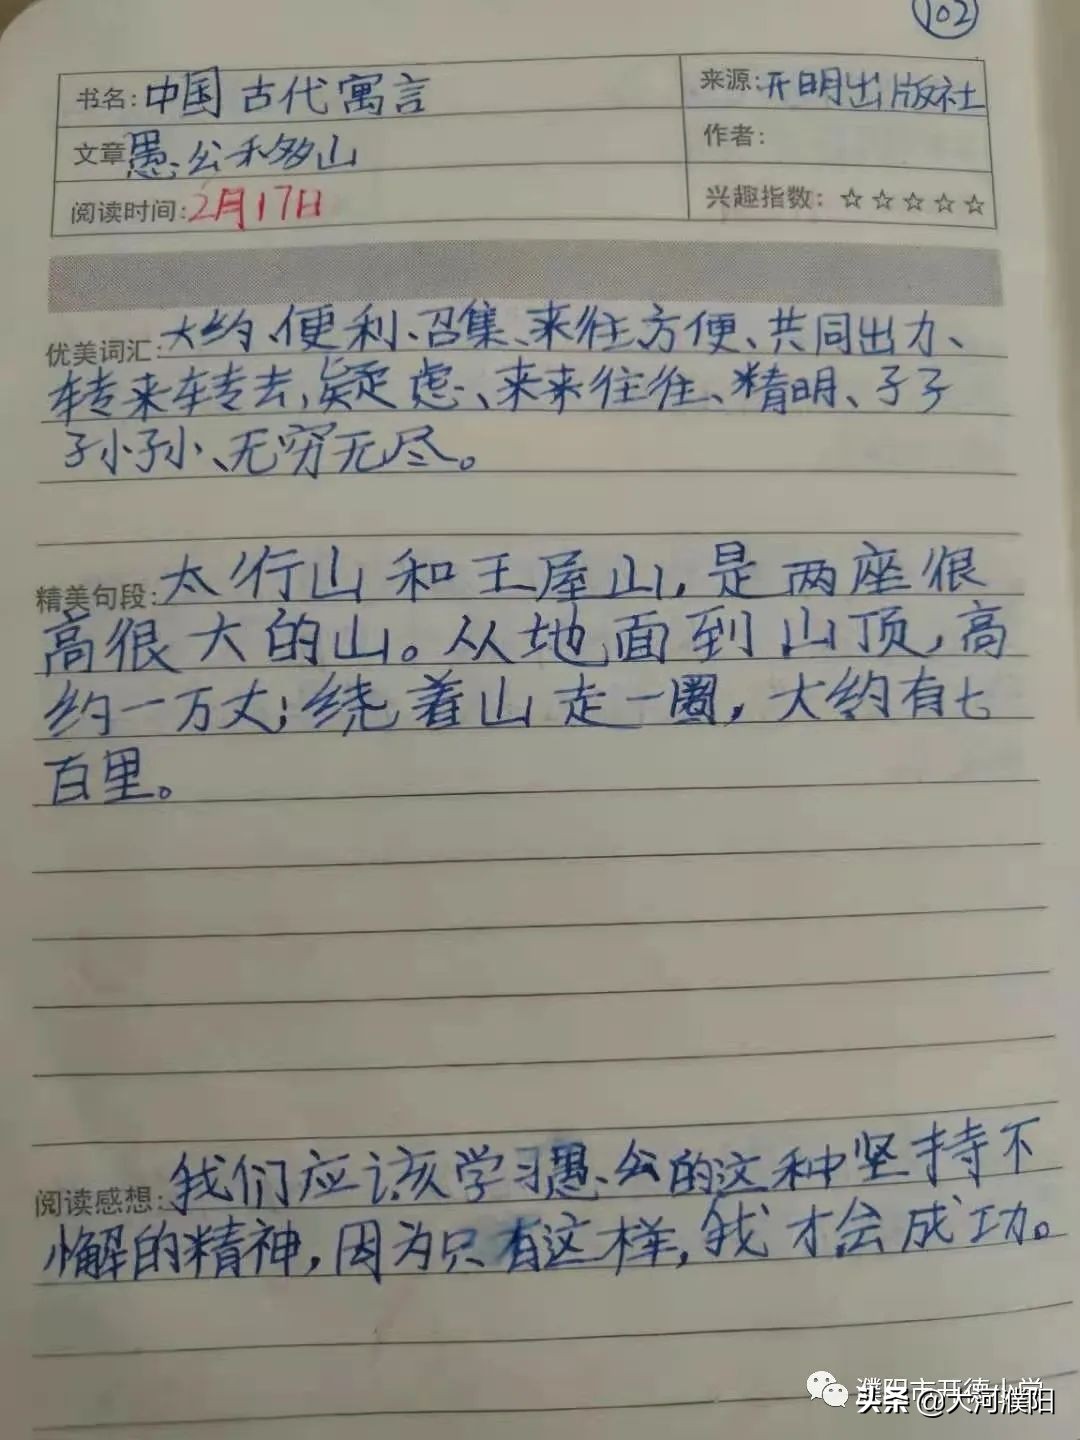 102
书名:中国古代寓言
来源:开明出版社
文章愚公移山
作者:
阅读时间:2月17日
兴趣指数: ☆☆☆☆☆
优美词汇:大约、便利、召集、来往方便、共同出力、
转来转去,疑虑、来来往往、精明、子子
孙孙、无穷无尽。
精美句段:太行山和王屋山,是两座很
高很大的山。从地面到山顶,高
约一万丈;绕着山走一圈,大约有七
百里。
阅读感想:我们应该学习愚公的这种坚持不
懈的精神,因为只有这样,我才会成功。
濮阳市开德小学
头条 @大河濮阳